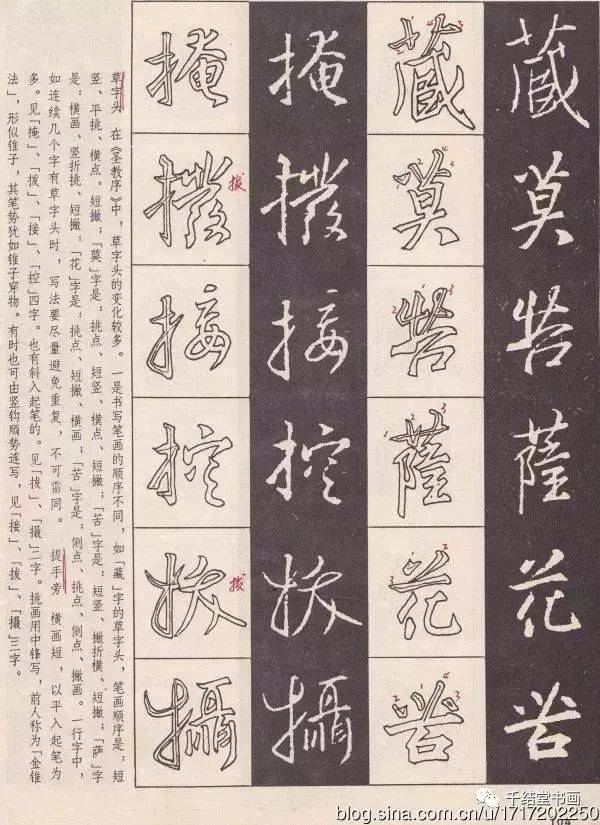 藏莫苦薩花苦
藏莫苦薩花苦
掩撥接控拔攝
掩撥接控拔攝
拨
拔
草字头 在《圣教序》中,草字头的变化较多。一是书写笔画的顺序不同,如「藏」字的草字头,笔画顺序是:短
竖、平挑、横点、短撇;「莫」字是:挑点、短竖、横点、短撇;「苦」字是:短竖、撇折横、短撇;「萨」字
是:横画、竖折挑、短撇;「花」字是:挑点、短撇、横画;「苦」字是:侧点、挑点、侧点、撇画。一行字中,
如连续几个字有草字头时,写法要尽量避免重复,不可雷同。 提手旁 横画短,以平入起笔为
多。见「掩」、「拨」、「接」、「控」四字。也有斜入起笔的。见「拔」、「摄」三字。挑画用中锋写,前人称为「金锥
法」,形似锥子,其笔势犹如锥子穿物。有时也可由竖钩顺势连写,见「接」、「拔」、「摄」三字。
千结堂书画
blog.sina.com.cn/u/1717202250